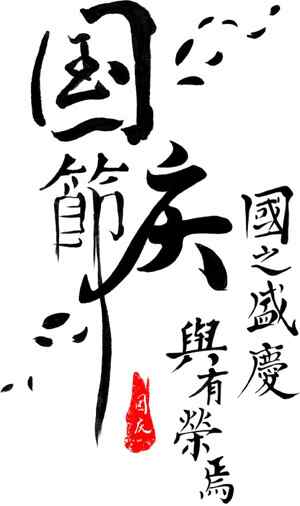 国庆節
國之盛慶
與有榮焉
国庆